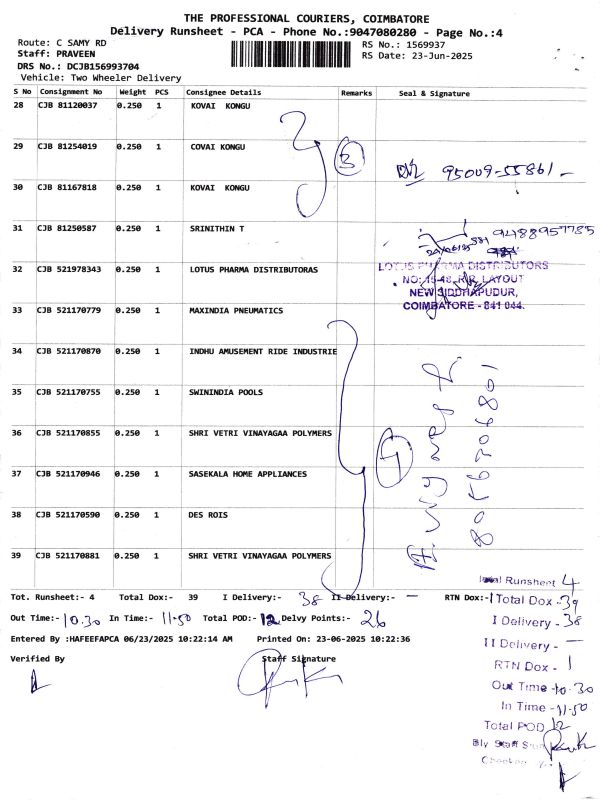 THE PROFESSIONAL COURIERS, COIMBATORE
Delivery Runsheet - PCA - Phone No.:9047080280 - Page No.:4
Route: C SAMY RD
RS No.: 1569937
Staff: PRAVEEN
RS Date: 23-Jun-2025
DRS No.: DCJB156993704
Vehicle: Two Wheeler Delivery
S No Consignment No Weight PCS Consignee Details Remarks Seal & Signature
28 CJB 81120037 0.250 1 KOVAI KONGU
29 CJB 81254019 0.250 1 COVAI KONGU
3
95009-55861
30 CJB 81167818 0.250 1 KOVAI KONGU
31 CJB 81250587 0.250 1 SRINITHIN T
9488957785
32 CJB 521978343 0.250 1 LOTUS PHARMA DISTRIBUTORAS
LOTUS PHARMA DISTRIBUTORS
NO: 45-48, R.R. LAYOUT
NEW SIDDHAPUDUR,
COIMBATORE - 641 044.
33 CJB 521170779 0.250 1 MAXINDIA PNEUMATICS
34 CJB 521170870 0.250 1 INDHU AMUSEMENT RIDE INDUSTRIE
35 CJB 521170755 0.250 1 SWININDIA POOLS
36 CJB 521170855 0.250 1 SHRI VETRI VINAYAGAA POLYMERS
37 CJB 521170946 0.250 1 SASEKALA HOME APPLIANCES
38 CJB 521170590 0.250 1 DES ROIS
39 CJB 521170881 0.250 1 SHRI VETRI VINAYAGAA POLYMERS
8056706801
Tot. Runsheet:- 4 Total Dox:- 39 I Delivery:- 38 II Delivery:- — RTN Dox:- 1
Out Time:- 10.30 In Time:- 11-50 Total POD:- 12 Delvy Points:- 26
Entered By :HAFEEFAPCA 06/23/2025 10:22:14 AM Printed On: 23-06-2025 10:22:36
Verified By Staff Signature
Total Runsheet 4
Total Dox - 39
I Delivery - 38
II Delivery - —
RTN Dox - 1
Out Time - 10.30
In Time - 11-50
Total POD 12